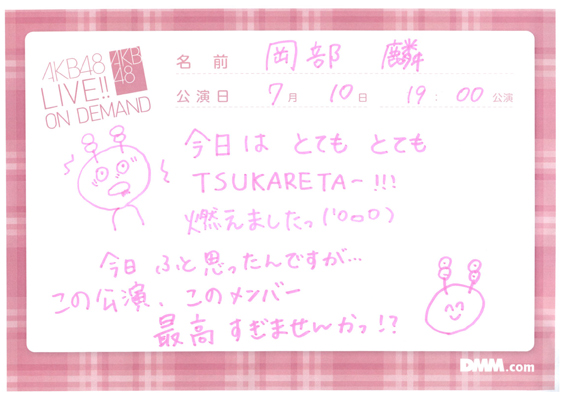 AKB48
LIVE!!
ON DEMAND
AKB
48
名前 岡部 麟
公演日 7月 10日 19:00公演
今日は とても とても
TSUKARETA〜!!!
燃えましたっ('ooo')
今日 ふと思ったんですが…
この公演、このメンバー
最高 すぎませんかっ!?
DMM.com